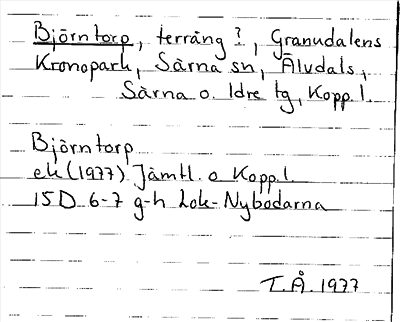 Björntorp, terräng ?, Granudalens
Kronopark, Särna sn, Älvdals,
Särna o. Idre tg, Kopp. l.
Björntorp
ek (1977) Jämtl. o Kopp. l.
15D 6-7 g-h Lok-Nybodarna
T.Å. 1977